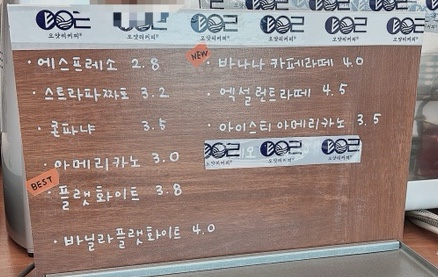 오앗티커피 오앗티커피 오앗티커피 오앗티커피 오앗티커피
· 에스프레소 2.8
· 스트라파짜토 3.2
· 콘파냐 3.5
· 아메리카노 3.0
BEST
· 플랫화이트 3.8
· 바닐라플랫화이트 4.0
NEW
· 바나나 카페라떼 4.0
· 엑설런트라떼 4.5
· 아이스티아메리카노 3.5